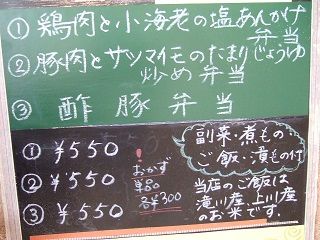 ① 鶏肉と小海老の塩あんかけ
弁当
② 豚肉とサツマイモのたまりじょうゆ
炒め 弁当
③ 酢豚弁当
① ¥550
② ¥550
③ ¥550
おかず
単品
各¥300
副菜・煮もの
ご飯・漬もの付
当店のご飯は
滝川産・上川産
のお米です。